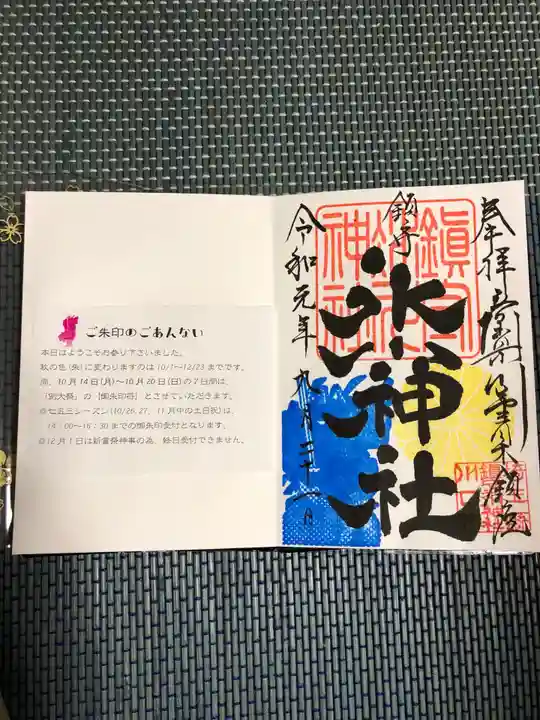 ご朱印のごあんない
本日はようこそお参り下さいました。
秋の色（朱）に変わりますのは10/1〜12/23までです。
尚、10月14日(月)〜10月20日(日)の7日間は、
「例大祭」の『御朱印符』とさせていただきます。
◎七五三シーズン(10/26、27、11月中の土日祝)は、
14：00〜16：30までの御朱印受付となります。
◎12月1日は新嘗祭神事の為、終日受付できません。
奉拝
鎮守
氷川神社
令和元年九月二十一日